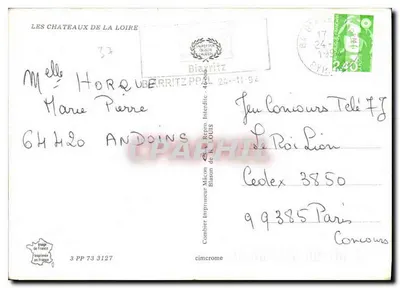 LES CHATEAUX DE LA LOIRE
BIARRITZ
BIARRITZ PPAL 24-11-94
2,40
Melle HORQUE
Marie Pierre
64420 ANDOINS
Jeu Concours Télé 7J
Le Roi Lion
Cedex 3850
99385 Paris
Concours
CPAPHIL
Combier imprimeur Mâcon
3 PP 73 3127
cimcrome